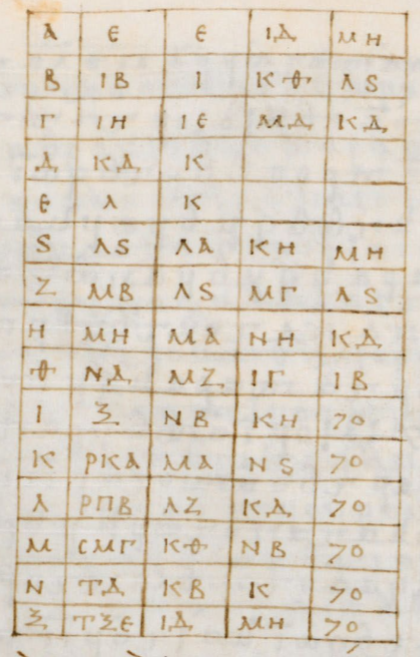 Α Ε Ε ΙΔ ΜΗ
Β ΙΒ Ι ΚΘ ΛϚ
Γ ΙΗ ΙΕ ΜΔ ΚΔ
Δ ΚΔ Κ
Ε Λ Κ
Ϛ ΛϚ ΛΑ ΚΗ ΜΗ
Ζ ΜΒ ΛϚ ΜΓ ΛϚ
Η ΜΗ ΜΑ ΝΗ ΚΔ
Θ ΝΔ ΜΖ ΙΓ ΙΒ
Ι Ξ ΝΒ ΚΗ 7ο
Κ ΡΚΑ ΜΑ ΝϚ 7ο
Λ ΡΠΒ ΛΖ ΚΔ 7ο
Μ ϹΜΓ ΚΘ ΝΒ 7ο
Ν ΤΔ ΚΒ Κ 7ο
Ξ ΤΞΕ ΙΔ ΜΗ 7ο